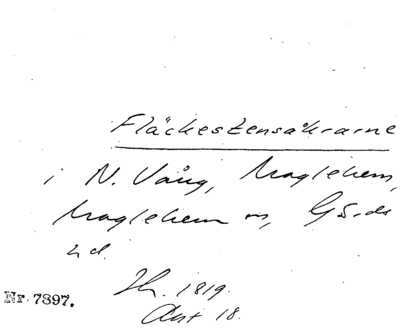 Fläckestensåkrarne
i N. Vång, Maglehem,
Maglehem sn, Gärds
hd.
Sk. 1819.
Akt 18.
Nr 7897.